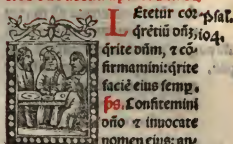 LEtetur cor psal.
q̃rẽtiũ dñz 104.
q̃rite dñm, ⁊ cõ
firmamini: q̃rite
faciẽ eius semp.
ps. Confitemini
dño ⁊ inuocate
nomen eius: an